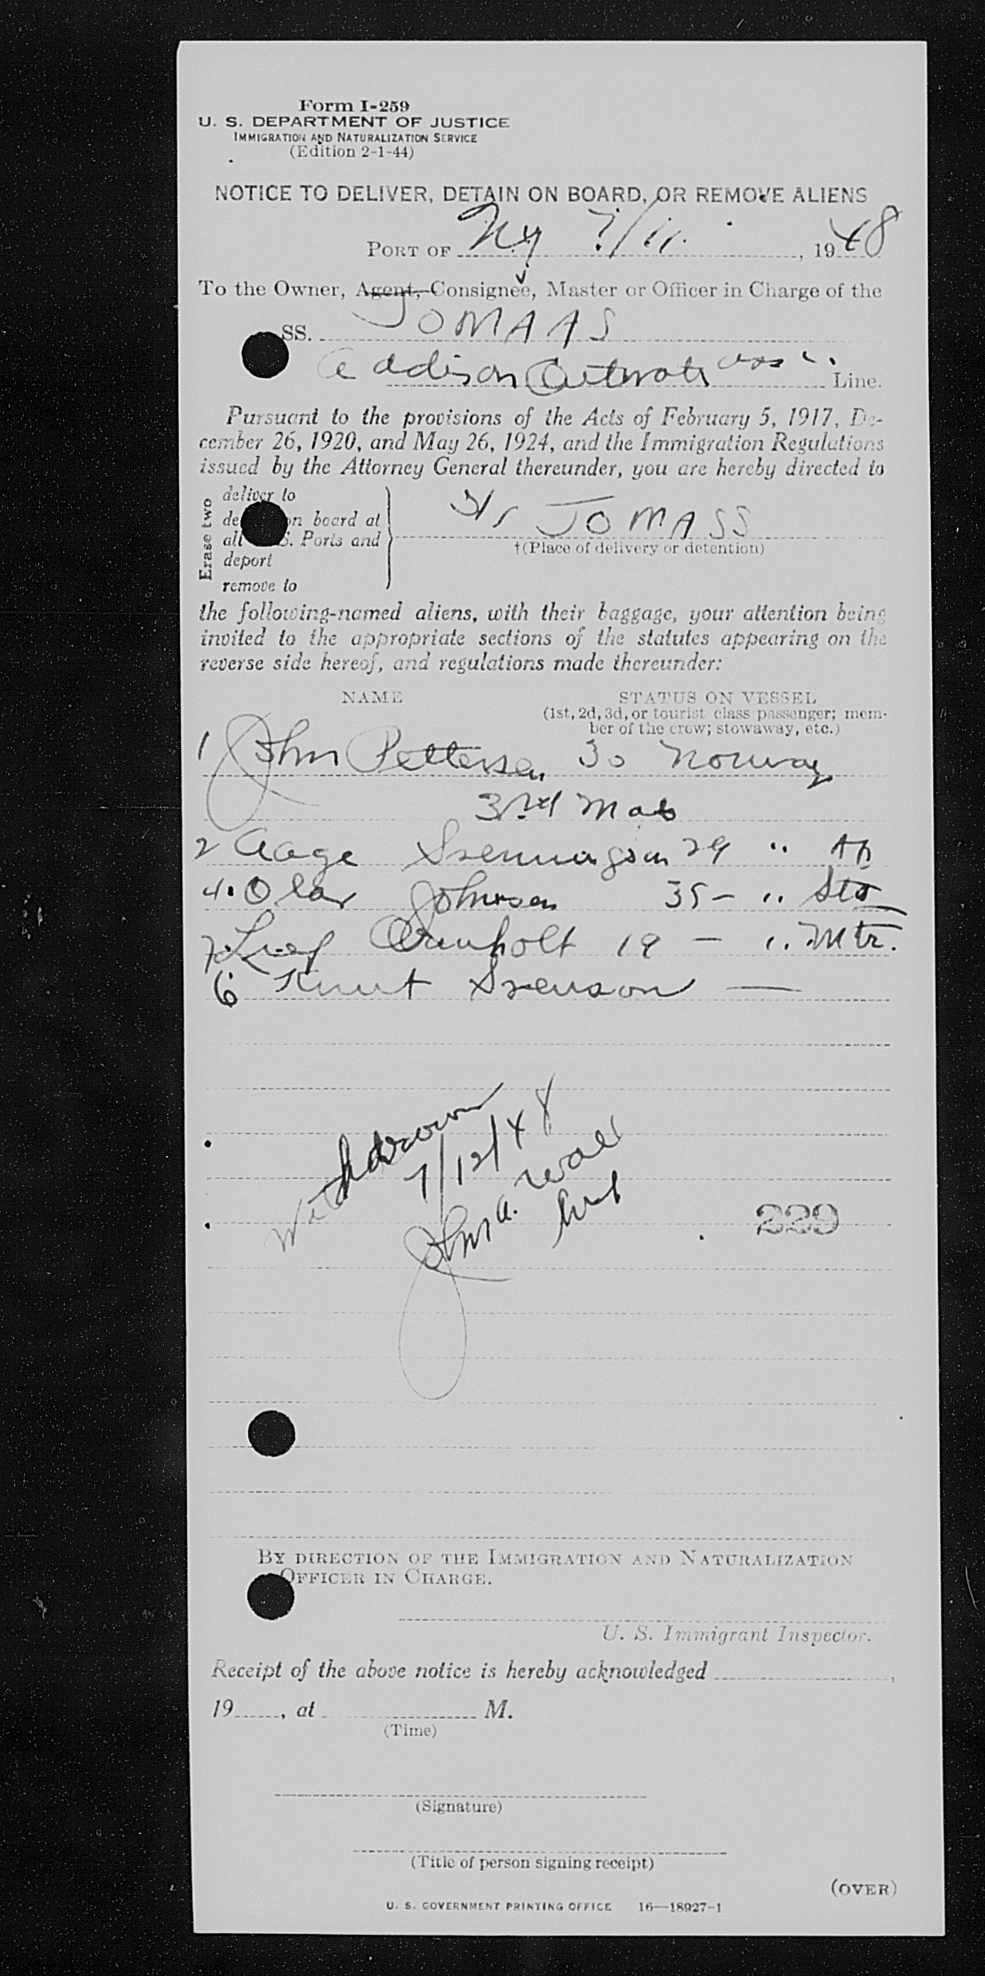 Form I-259
U. S. DEPARTMENT OF JUSTICE
IMMIGRATION AND NATURALIZATION SERVICE
(Edition 2-1-44)
NOTICE TO DELIVER, DETAIN ON BOARD, OR REMOVE ALIENS
PORT OF NY 7/11 , 1948
To the Owner, Agent, Consignee, Master or Officer in Charge of the
SS. JOMAAS
Line.
Pursuant to the provisions of the Acts of February 5, 1917, De-
cember 26, 1920, and May 26, 1924, and the Immigration Regulations
issued by the Attorney General thereunder, you are hereby directed to
Erase two
deliver to
on board at
S. Ports and
deport
remove to
S/S JOMASS
†(Place of delivery or detention)
the following-named aliens, with their baggage, your attention being
invited to the appropriate sections of the statutes appearing on the
reverse side hereof, and regulations made thereunder:
NAME STATUS ON VESSEL
(1st, 2d, 3d, or tourist class passenger; mem-
ber of the crew; stowaway, etc.)
1 John Pettersen 30 Norway
3rd Mate
2 Aage 29 "
4. Olav Johnsen 35 - " Sto
19 - " Mtr.
6 Knut Svenson —
Withdrawn
7/12/48
John A.
229
BY DIRECTION OF THE IMMIGRATION AND NATURALIZATION
OFFICER IN CHARGE.
U. S. Immigrant Inspector.
Receipt of the above notice is hereby acknowledged ,
19 , at M.
(Time)
(Signature)
(Title of person signing receipt)
(OVER)
U. S. GOVERNMENT PRINTING OFFICE 16—18927-1